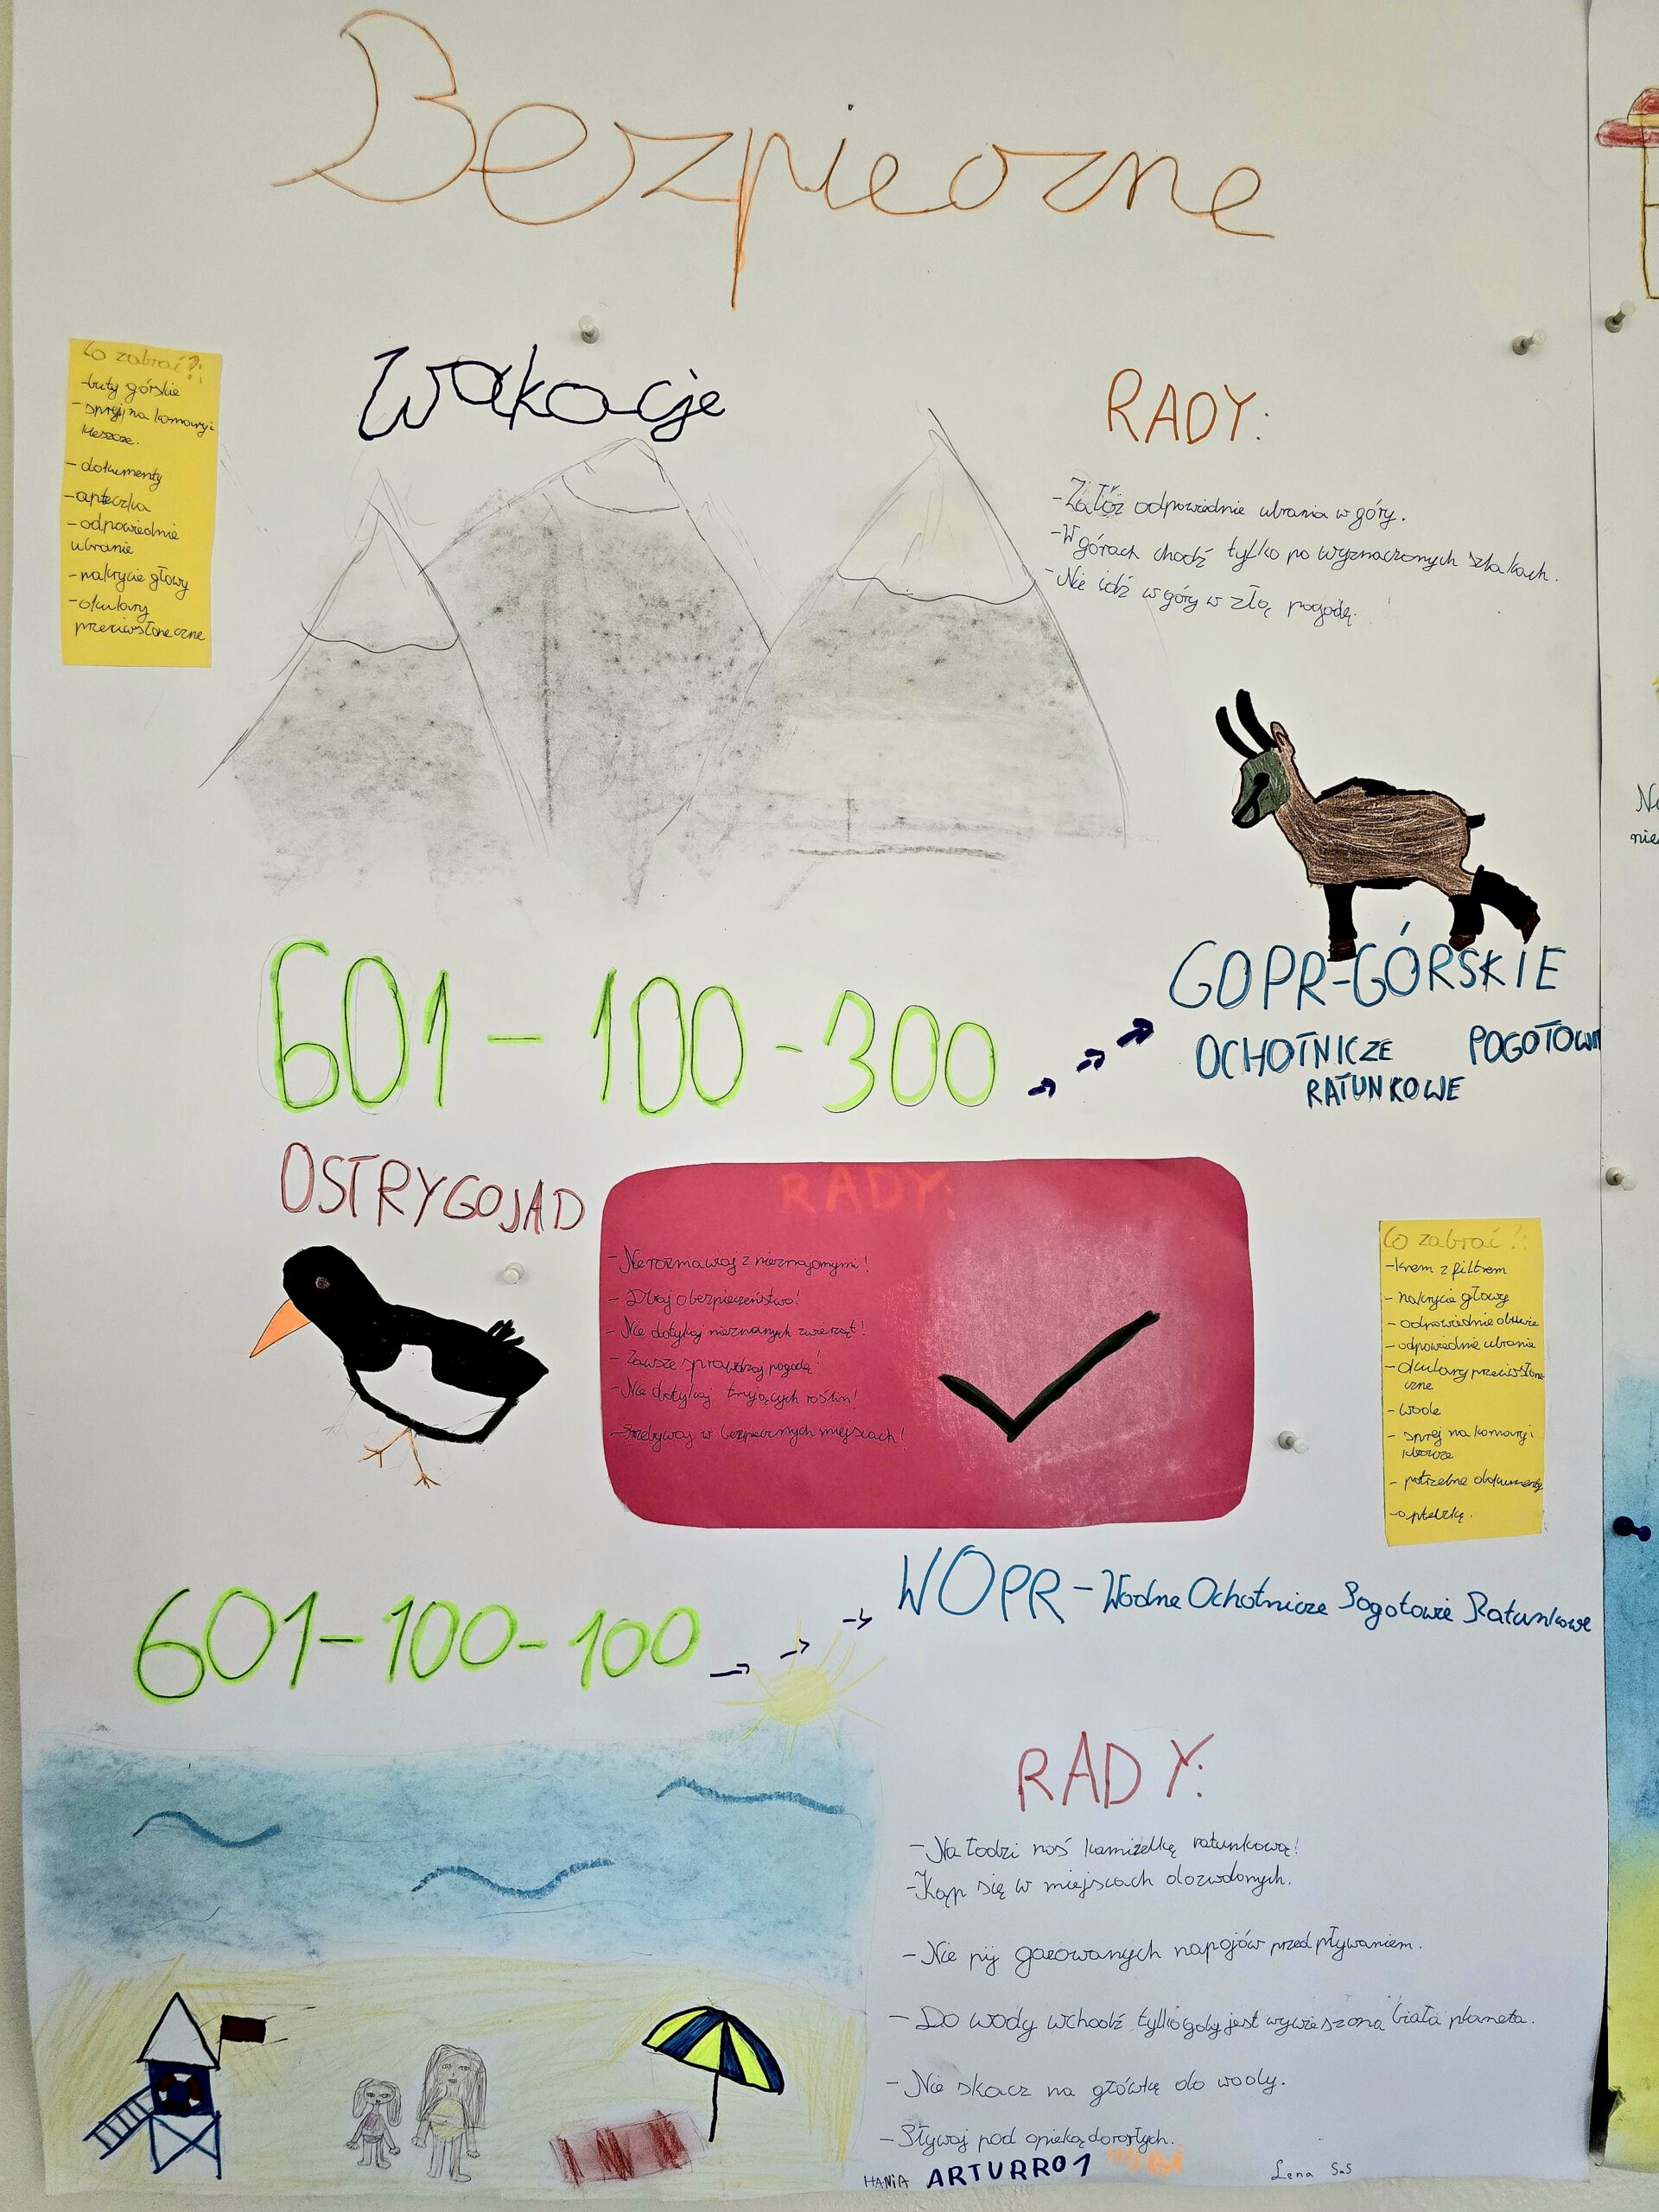 Bezpieczne
Wakacje
Co zabrać?!
-buty górskie
-sprej na komary i
kleszcze.
-dokumenty
-apteczka
-odpowiednie
ubranie
-nakrycie głowy
-okulary
przeciwsłoneczne
RADY:
-Załóż odpowiednie ubrania w góry.
-W górach chodź tylko po wyznaczonych szlakach.
-Nie idź w góry w złą pogodę.
601-100-300
GOPR-GÓRSKIE
OCHOTNICZE POGOTOWI
RATUNKOWE
OSTRYGOJAD
RADY:
-Nie rozmawiaj z nieznajomymi!
-Dbaj o bezpieczeństwo!
-Nie dotykaj nieznanych zwierząt!
-Zawsze sprawdzaj pogodę!
-Nie dotykaj trujących roślin!
-Przebywaj w bezpiecznych miejscach!
Co zabrać?!
-krem z filtrem
-nakrycie głowy
-odpowiednie obuwie
-odpowiednie ubranie
-okulary przeciwsłone-
czne
-wodę
-sprej na komary i
kleszcze
-potrzebne dokumenty
-apteczkę.
601-100-100
WOPR-Wodne Ochotnicze Pogotowie Ratunkowe
RADY:
-Na łodzi noś kamizelkę ratunkową!
-Kąp się w miejscach dozwolonych.
-Nie pij gazowanych napojów przed pływaniem.
-Do wody wchodź tylko gdy jest wywieszona biała plameta.
-Nie skacz na główkę do wody.
-Pływaj pod opieką dorosłych.
HANIA ARTURRO1
Lena SaS
Ni
nie